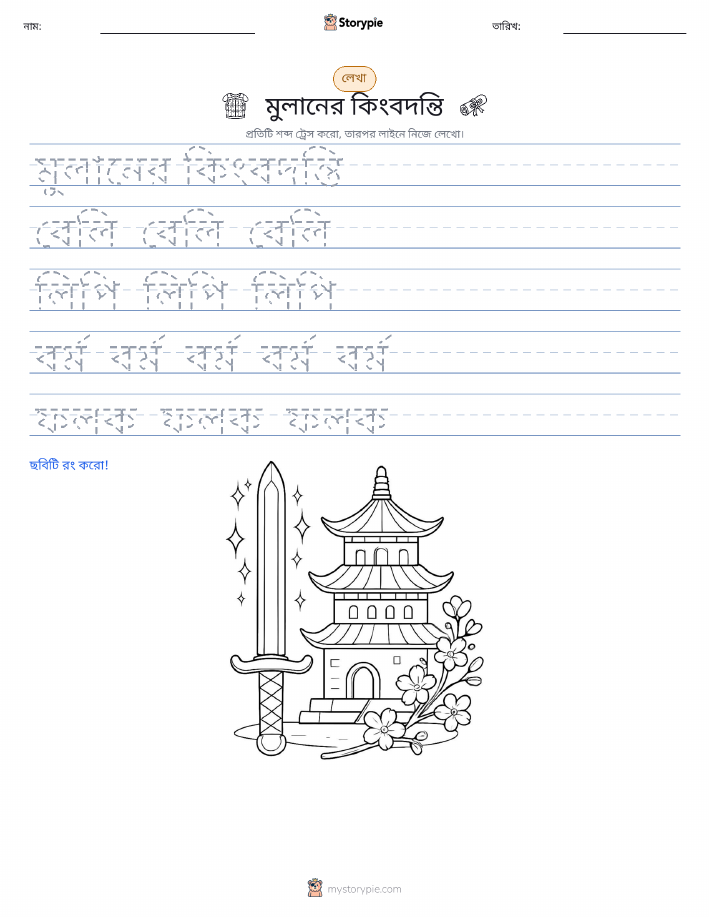 নাম:
Storypie
তারিখ:
লেখা
মুলানের কিংবদন্তি
প্রতিটি শব্দ ট্রেস করো, তারপর লাইনে নিজে লেখো।
মুলানের কিংবদন্তি
বেলি বেলি বেলি
লিপি লিপি লিপি
বর্ম বর্ম বর্ম বর্ম বর্ম
ফলক ফলক ফলক
ছবিটি রং করো!
mystorypie.com